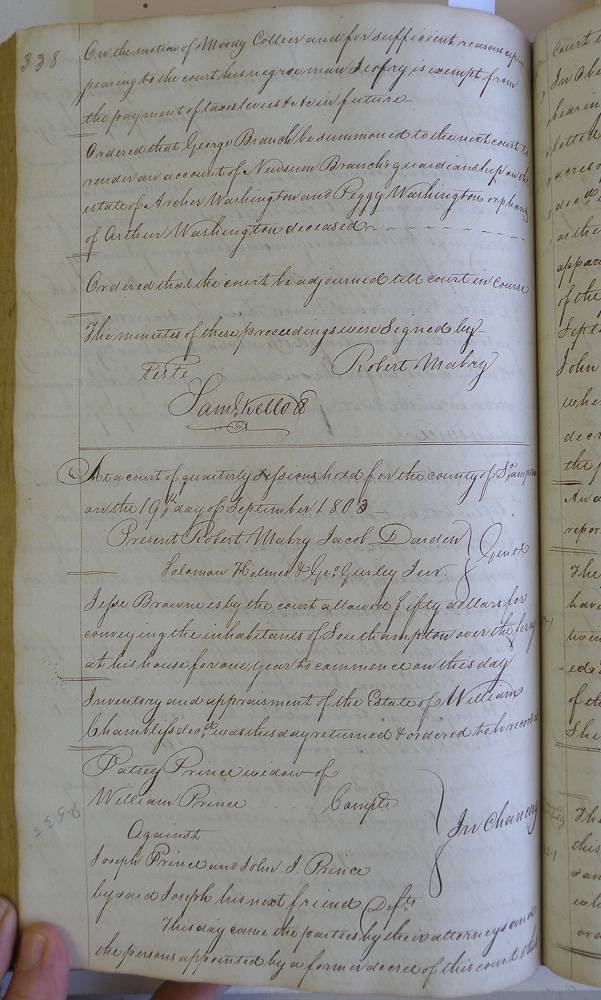 338
On the motion of Moody Collier and for sufficient reasons ap
pearing to the court his negroe man Jeoffry is exempt from
the payment of taxes levies &c &c in future
Ordered that George Branch be summoned to the next court to
render an account of Newsum Branch's guardianship on the
estate of Archer Washington and Peggy Washington orphans
of Arthur Washington deceased
Ordered that the court be adjourned till court in course
The minutes of these proceedings were Signed by
Teste
Robert Mabry
Saml Kello
At a court of quarterly Sessions held for the county of So ampton
on the 19th day of September 1803
Present Robert Mabry Jacob Darden
Solomon Holmes & Geo: Gurley Jur.
Gentn
Jesse Browne is by the court allowed fifty dollars for
conveying the inhabitants of Southampton over the
at his house for one year to commence on this day
Inventory and appraisment of the Estate of William
Chambliss decd was this day returned & ordered to be recorded
Patsey Prince widow of
William Prince Complt
Against
In Chancery
Joseph Prince and John J. Prince
by said Joseph his next friend Defts
This day came the parties by their attorneys and
the persons appointed by a former decree of this court